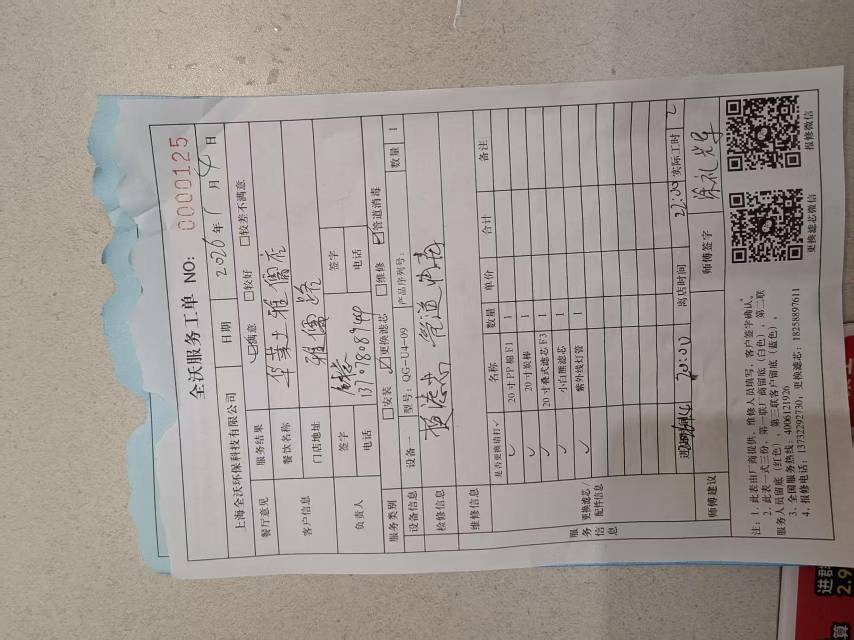 全沃服务工单 NO: 0000125
上海全沃环保科技有限公司 日期 2026年1月4日
餐厅意见 服务结果 ☑满意 □较好 □较差不满意
客户信息 餐饮名称
门店地址 雅儒路
负责人 签字 签字
电话 电话
服务类别 □安装 ☑更换滤芯 □维修 ☑管道消毒
设备信息 设备一 型号: QG-U4-09 产品序列号: 数量 1
检修信息 换滤芯 管道消毒
维修信息
服务信息 更换滤芯/配件信息 是否更换请打✓ 名称 数量 单价 合计 备注
✓ 20寸PP棉F1 1
✓ 20寸炭棒 1
✓ 20寸叠式滤芯F3 1
✓ 小白熊滤芯 1
✓ 紫外线灯管 1
20:00 离店时间 22:00 实际工时 2
师傅建议 师傅签字
注: 1, 此表由厂商提供、维修人员填写, 客户签字确认。
2, 此表一式三份, 第一联厂商留底(白色)、第二联
服务人员留底(红色)、第三联客户留底(蓝色)。
3, 全国服务热线: 4006121926
4, 报修电话: 13732292730, 更换滤芯: 18258897611
更换滤芯微信 报修微信
进群
2.9
算